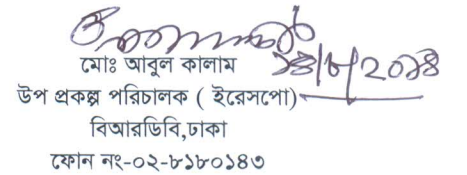 মোঃ আবুল কালাম
উপ প্রকল্প পরিচালক ( ইরেসপো)
বিআরডিবি,ঢাকা
ফোন নং-০২-৮১৮০১৪৩